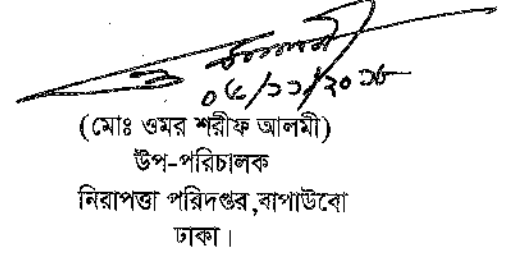 ০৫/১১/২০১৮
(মোঃ ওমর শরীফ আলমী)
উপ-পরিচালক
নিরাপত্তা পরিদপ্তর,বাপাউবো
ঢাকা।